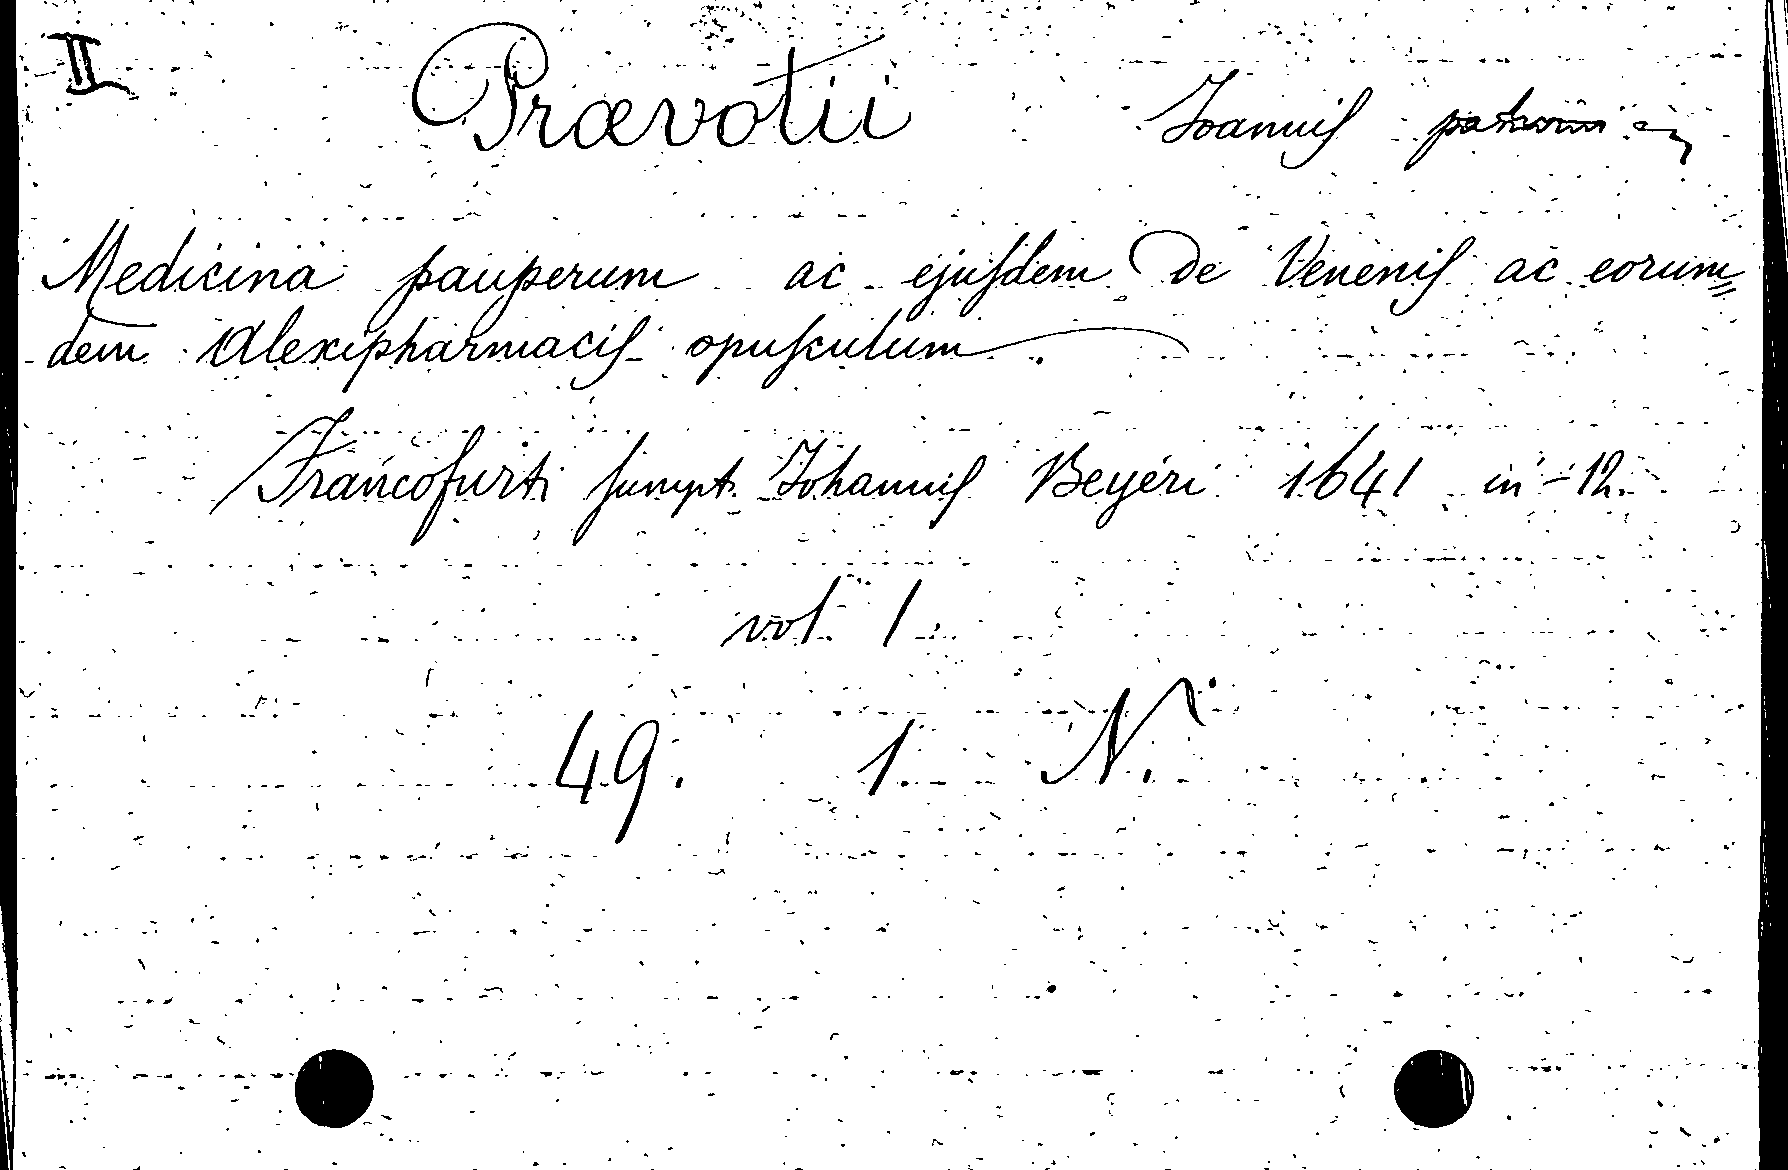 II Prævotii Joannis
Medicina pauperum ac ejusdem De Venenis ac eorum=
dem Alexipharmacis opusculum.
Francofurti sumpt. Johannis Beyeri 1641 in-12.
vol 1.
49. 1. N.